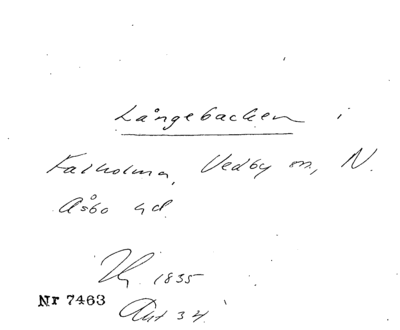 Långebacken i
Farholma, Vedby sn, N.
Åsbo hd.
1835
Nr 7463
Akt 34.